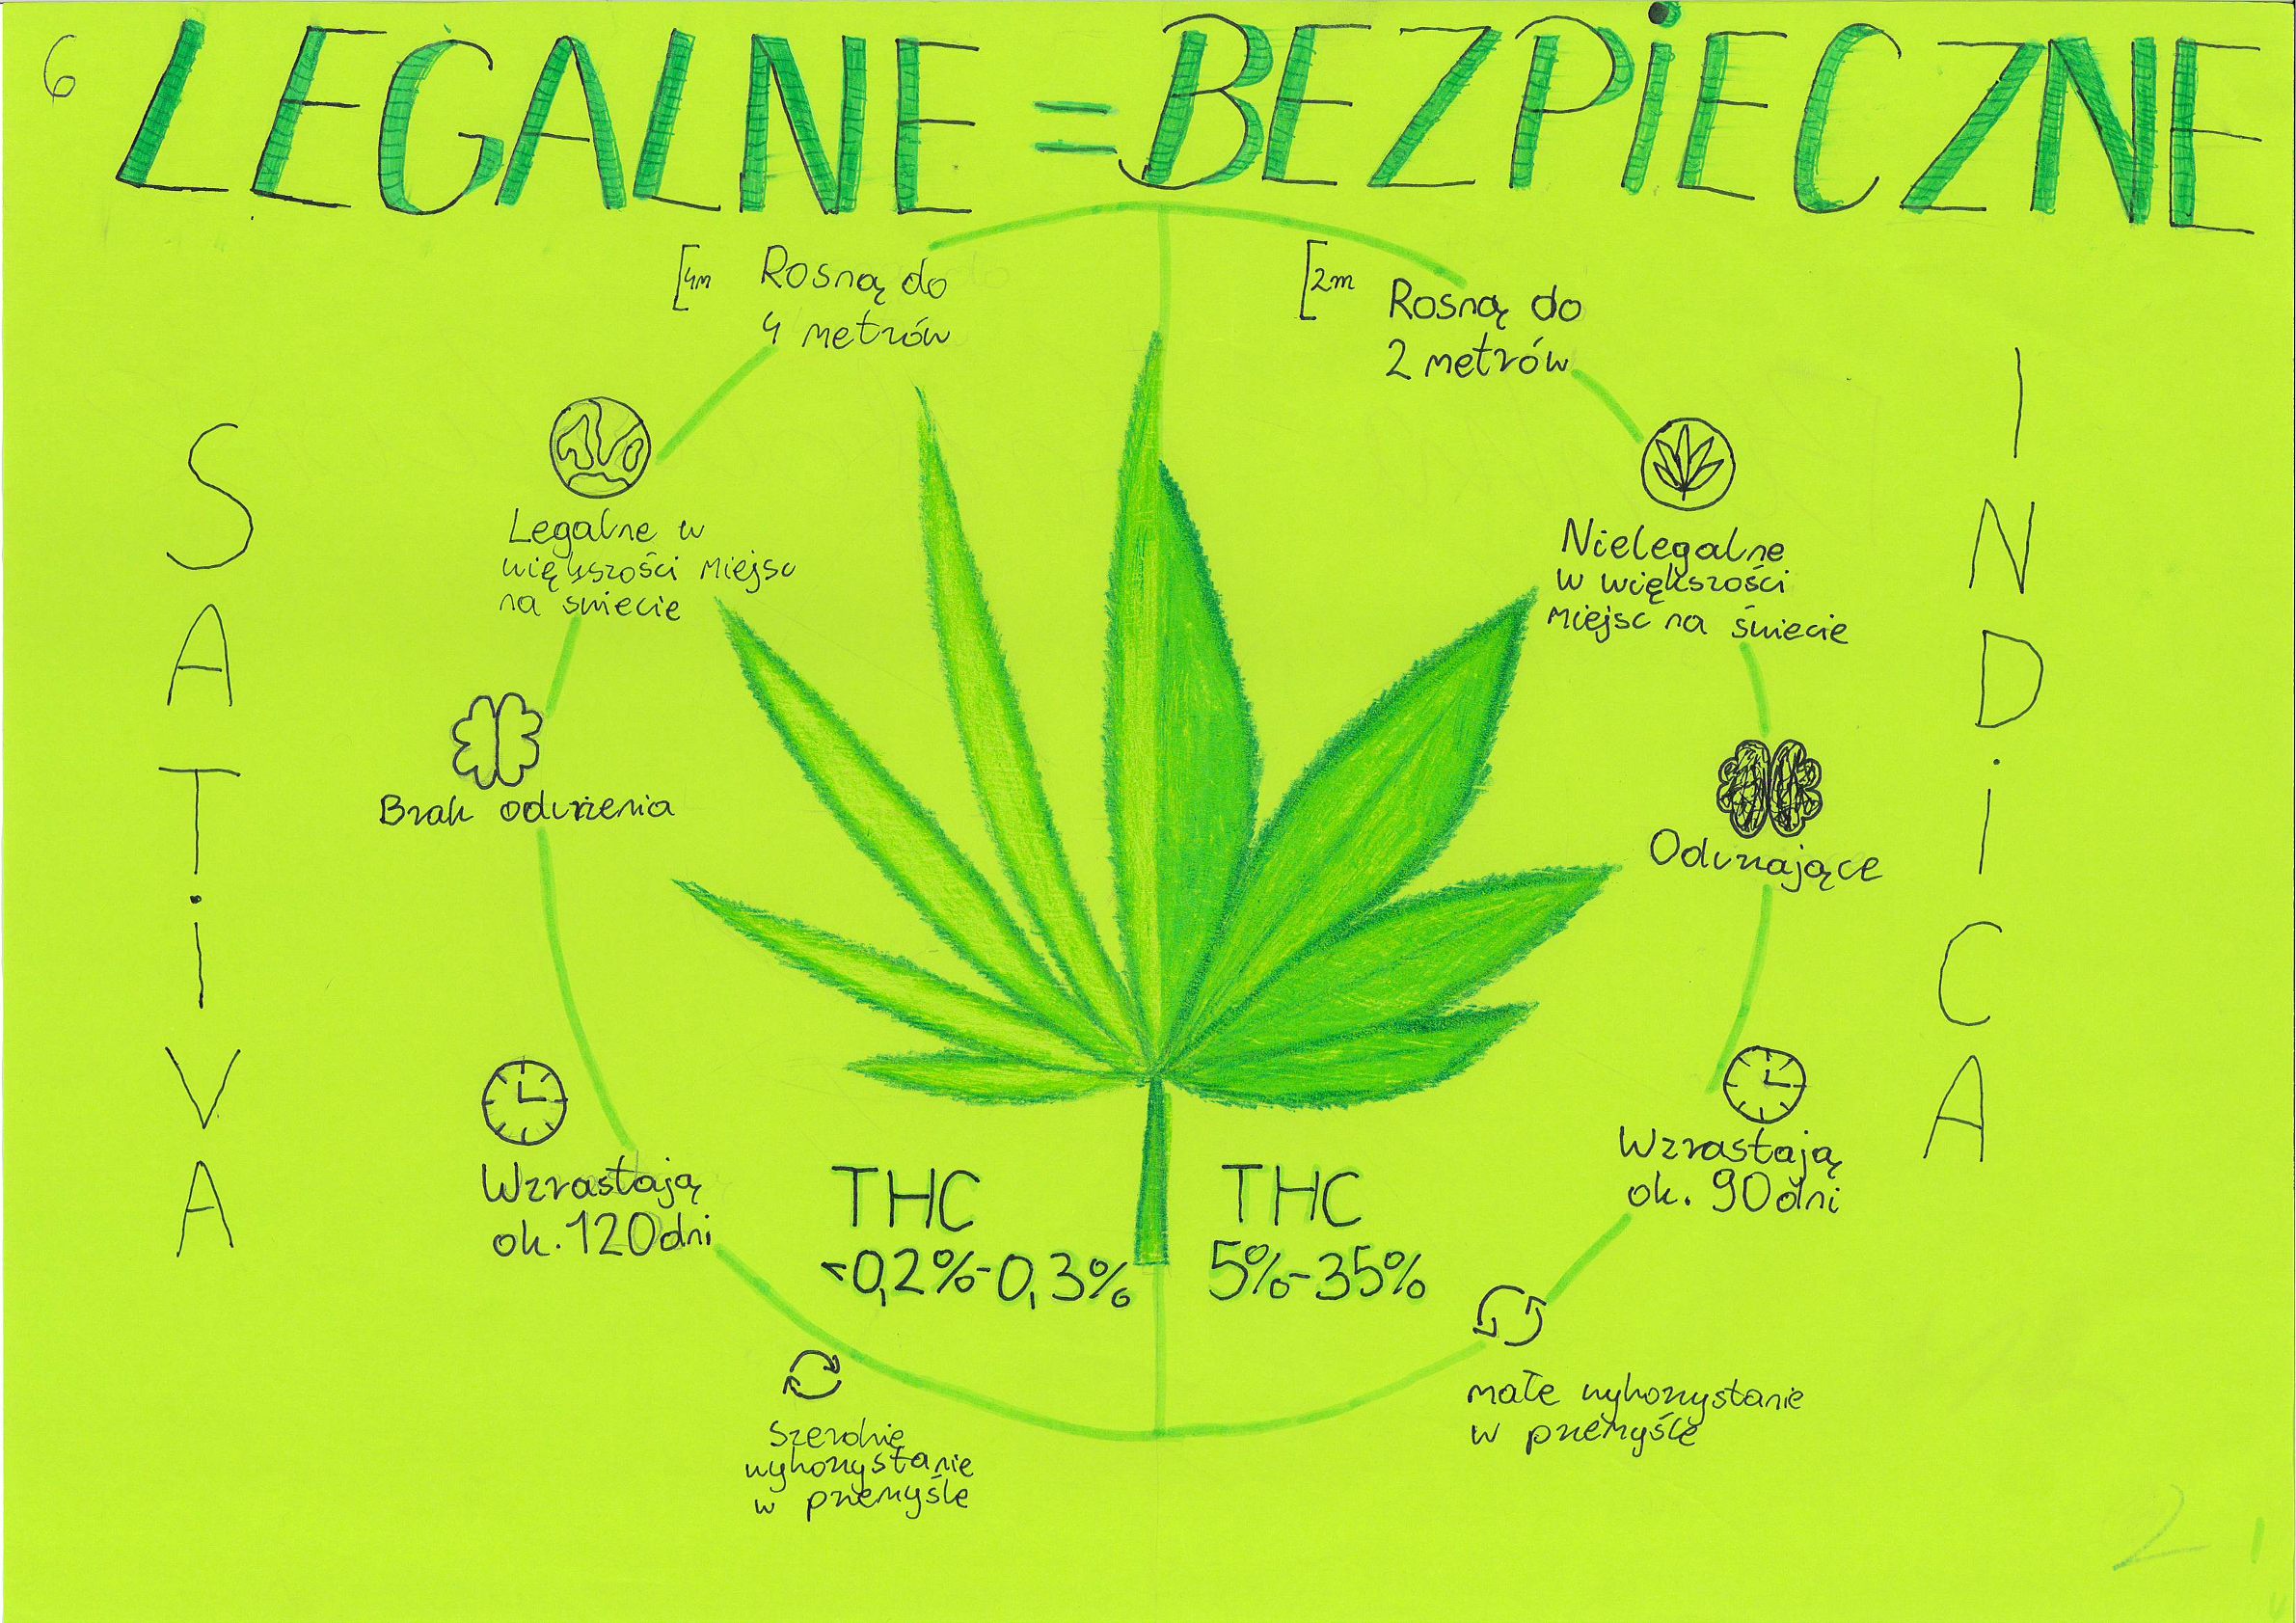 6
LEGALNE = BEZPiECZNE
SATiVA
4m
Rosną do
4 metrów
Legalne w
większości miejsc
na świecie
Brak odurzenia
Wzrastają
ok. 120 dni
THC
<0,2%-0,3%
Szerokie
wykorzystanie
w przemyśle
INDiCA
2m
Rosną do
2 metrów
Nielegalne
w większości
miejsc na świecie
Odurzające
Wzrastają
ok. 90 dni
THC
5%-35%
małe wykorzystanie
w przemyśle
2